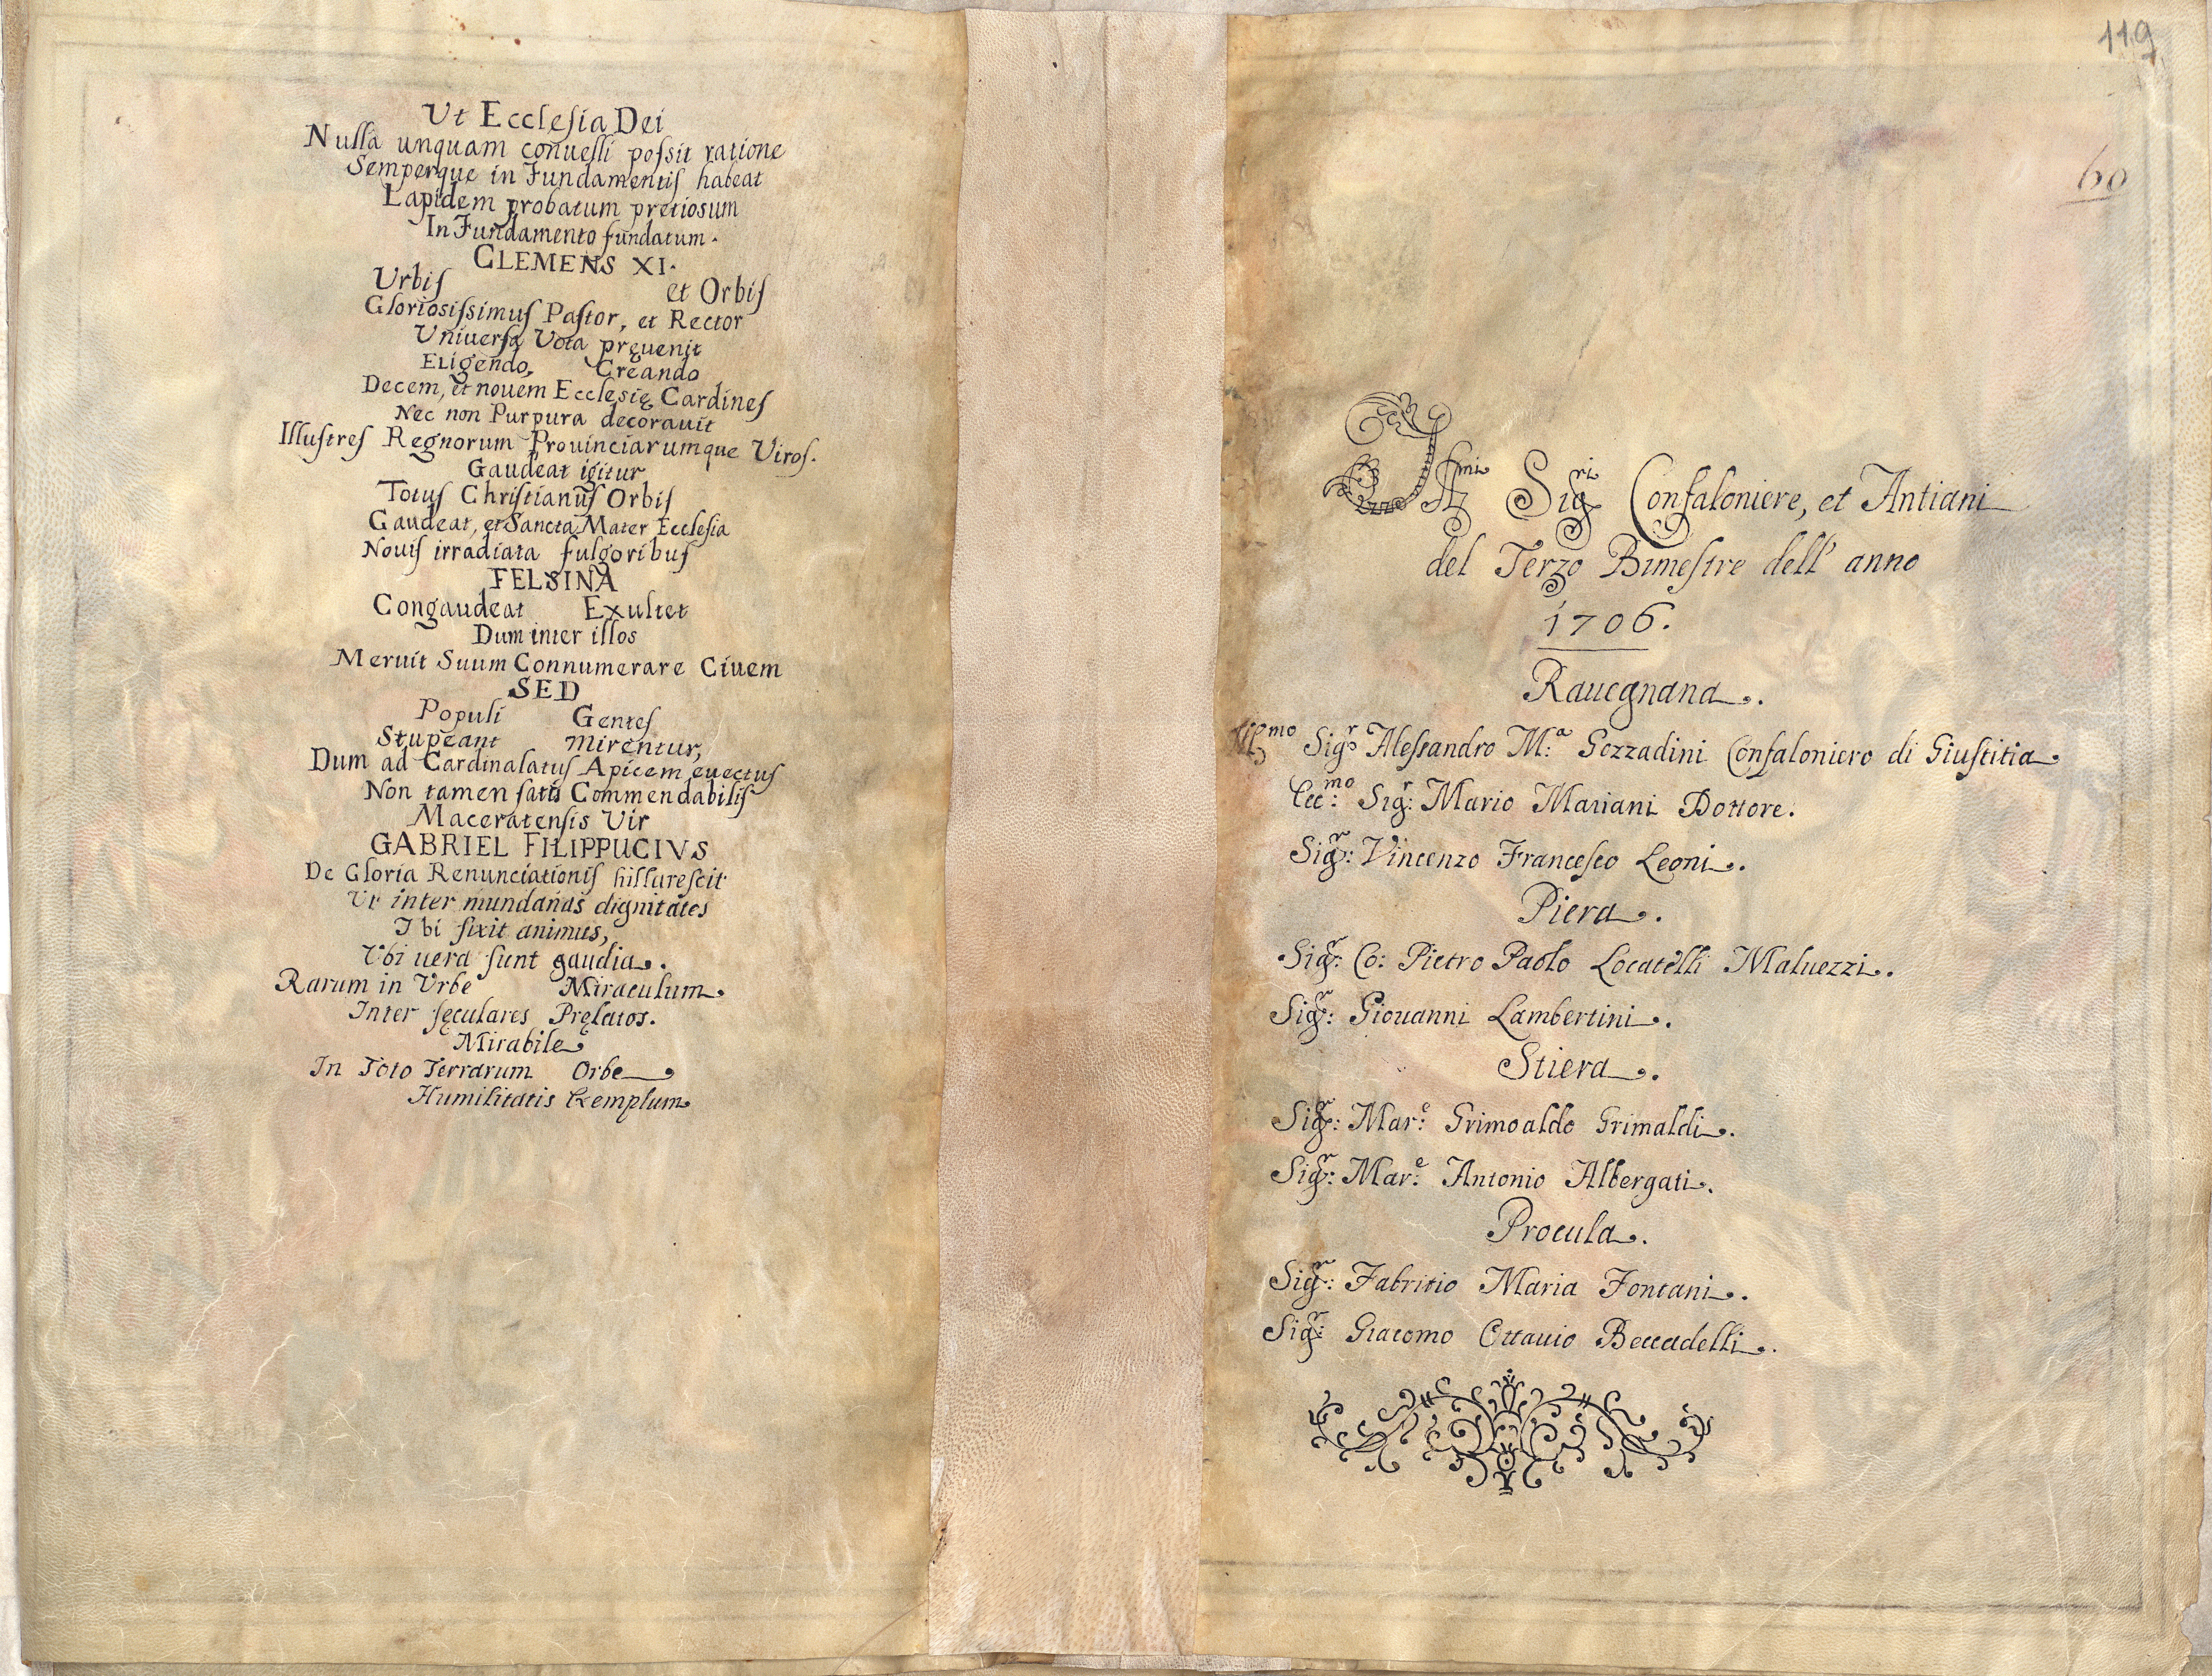 Ut Ecclesia Dei
Nulla unquam conuelli possit ratione
Semperque in Fundamentis habeat
Lapidem probatum pretiosum
In Fundamento fundatum.
CLEMENS XI.
Urbis et Orbis
Gloriosissimus Pastor, et Rector
Uniuersa Vota pręuenit
Eligendo, Creando
Decem, et nouem Ecclesię Cardines
Nec non Purpura decorauit
Illustres Regnorum Prouinciarumque Viros.
Gaudeat igitur
Totus Christianus Orbis
Gaudeat, et Sancta Mater Ecclesia
Nouis irradiata fulgoribus
FELSINA
Congaudeat Exultet
Dum inter illos
Meruit Suum Connumerare Ciuem
SED
Populi Gentes
Stupeant Mirentur,
Dum ad Cardinalatus Apicem euectus
Non tamen satis Commendabilis
Maceratensis Vir
GABRIEL FILIPPUCIVS
De Gloria Renunciationis hillarescit
Ut inter mundanas dignitates
Ibi fixit animus,
Vbi uera sunt gaudia.
Rarum in Vrbe Miraculum
Inter sęculares Pręlatos.
Mirabile
In Toto Terrarum Orbe
Humilitatis Exemplum
119
60
Illmi Sigri Confaloniere, et Antiani
del Terzo Bimestre dell' anno
1706.
Rauegnana.
Illmo Sigr Alessandro M.a Gozzadini Confaloniero di Giustitia
Ecc:mo Sigr: Mario Mariani Dottore.
Sigr: Vincenzo Francesco Leoni.
Piera.
Sigr: Co: Pietro Paolo Locatelli Maluezzi.
Sigr: Giouanni Lambertini.
Stiera.
Sigr: Mar:e Grimoaldo Grimaldi.
Sigr: Mar:e Antonio Albergati.
Procula.
Sigr: Fabritio Maria Fontani.
Sigr: Giacomo Ottauio Beccadelli.